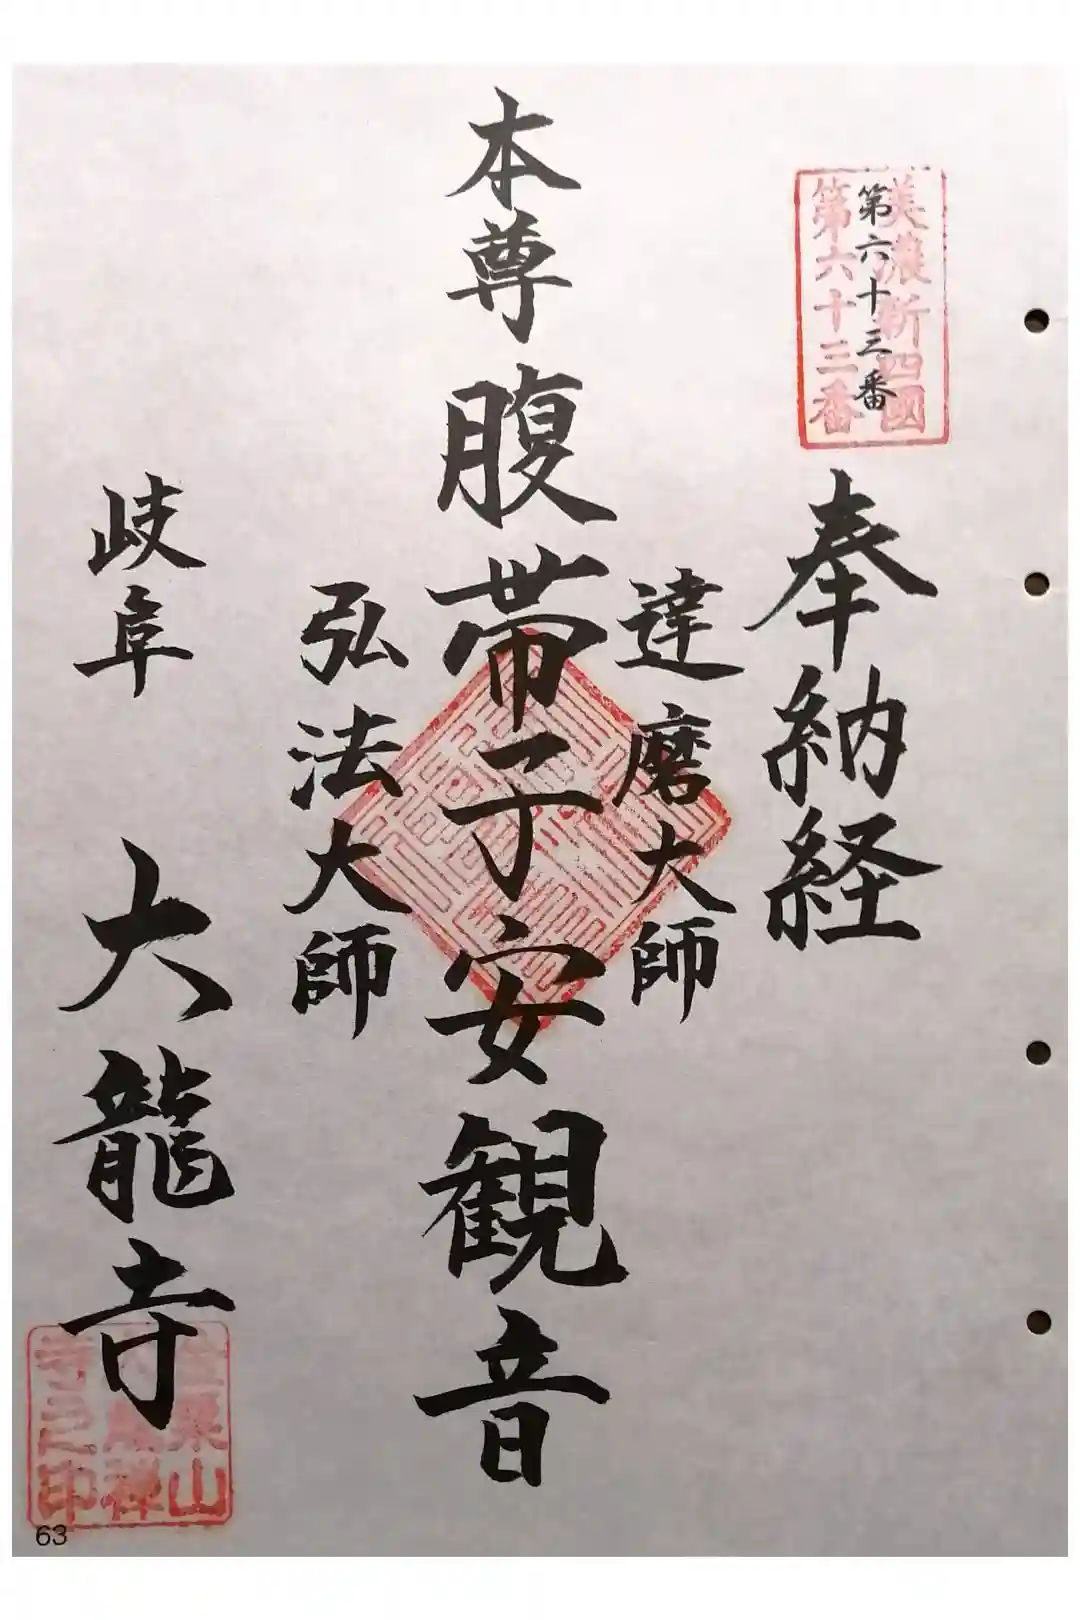 美濃新四國
第六十三番
第六十三番
奉納経
達磨大師
本尊腹帯子安観音
弘法大師
岐阜 大龍寺
寺之印
63